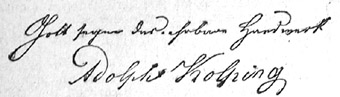 Gott segne das ehrbare Handwerk
Adolph Kolping